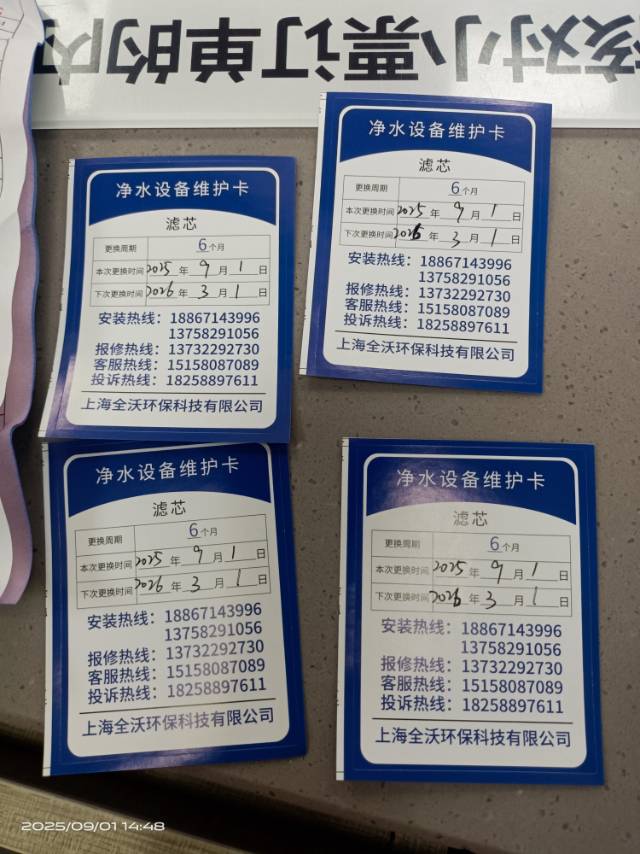 核对小票订单的内
净水设备维护卡
滤芯
更换周期 6个月
本次更换时间 2025年9月1日
下次更换时间 2026年3月1日
安装热线：18867143996
13758291056
报修热线：13732292730
客服热线：15158087089
投诉热线：18258897611
上海全沃环保科技有限公司
净水设备维护卡
滤芯
更换周期 6个月
本次更换时间 2025年9月1日
下次更换时间 2026年3月1日
安装热线：18867143996
13758291056
报修热线：13732292730
客服热线：15158087089
投诉热线：18258897611
上海全沃环保科技有限公司
净水设备维护卡
滤芯
更换周期 6个月
本次更换时间 2025年9月1日
下次更换时间 2026年3月1日
安装热线：18867143996
13758291056
报修热线：13732292730
客服热线：15158087089
投诉热线：18258897611
上海全沃环保科技有限公司
净水设备维护卡
滤芯
更换周期 6个月
本次更换时间 2025年9月1日
下次更换时间 2026年3月1日
安装热线：18867143996
13758291056
报修热线：13732292730
客服热线：15158087089
投诉热线：18258897611
上海全沃环保科技有限公司
2025/09/01 14:48